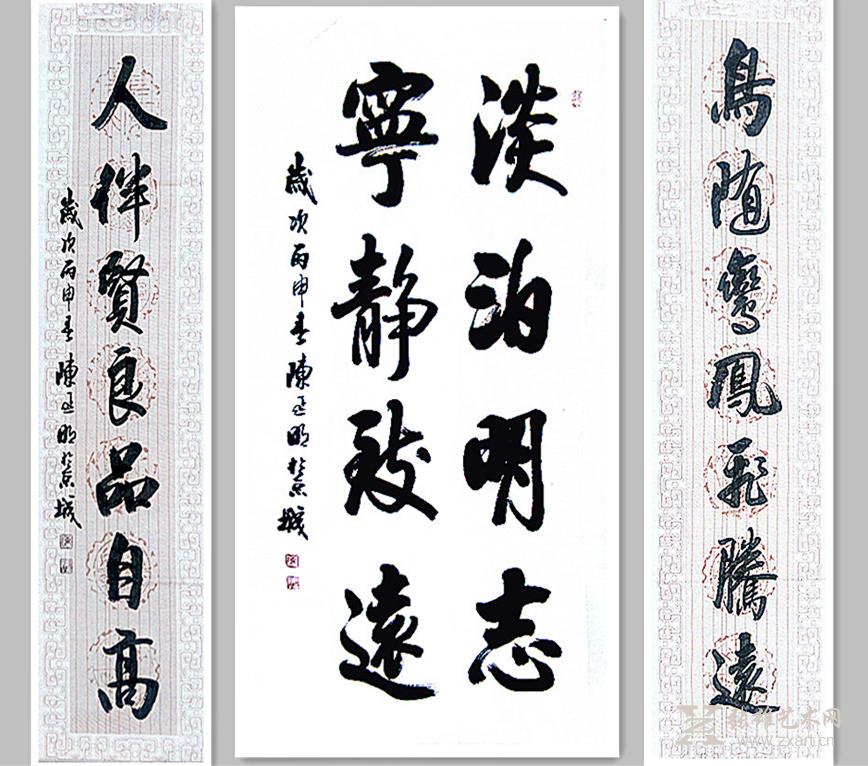 鳥随鸞鳳飛騰遠
淡泊明志
寧静致遠
歲次丙申春陳正明於京城
人伴賢良品自高
歲次丙申春陳正明於京城
艺术网